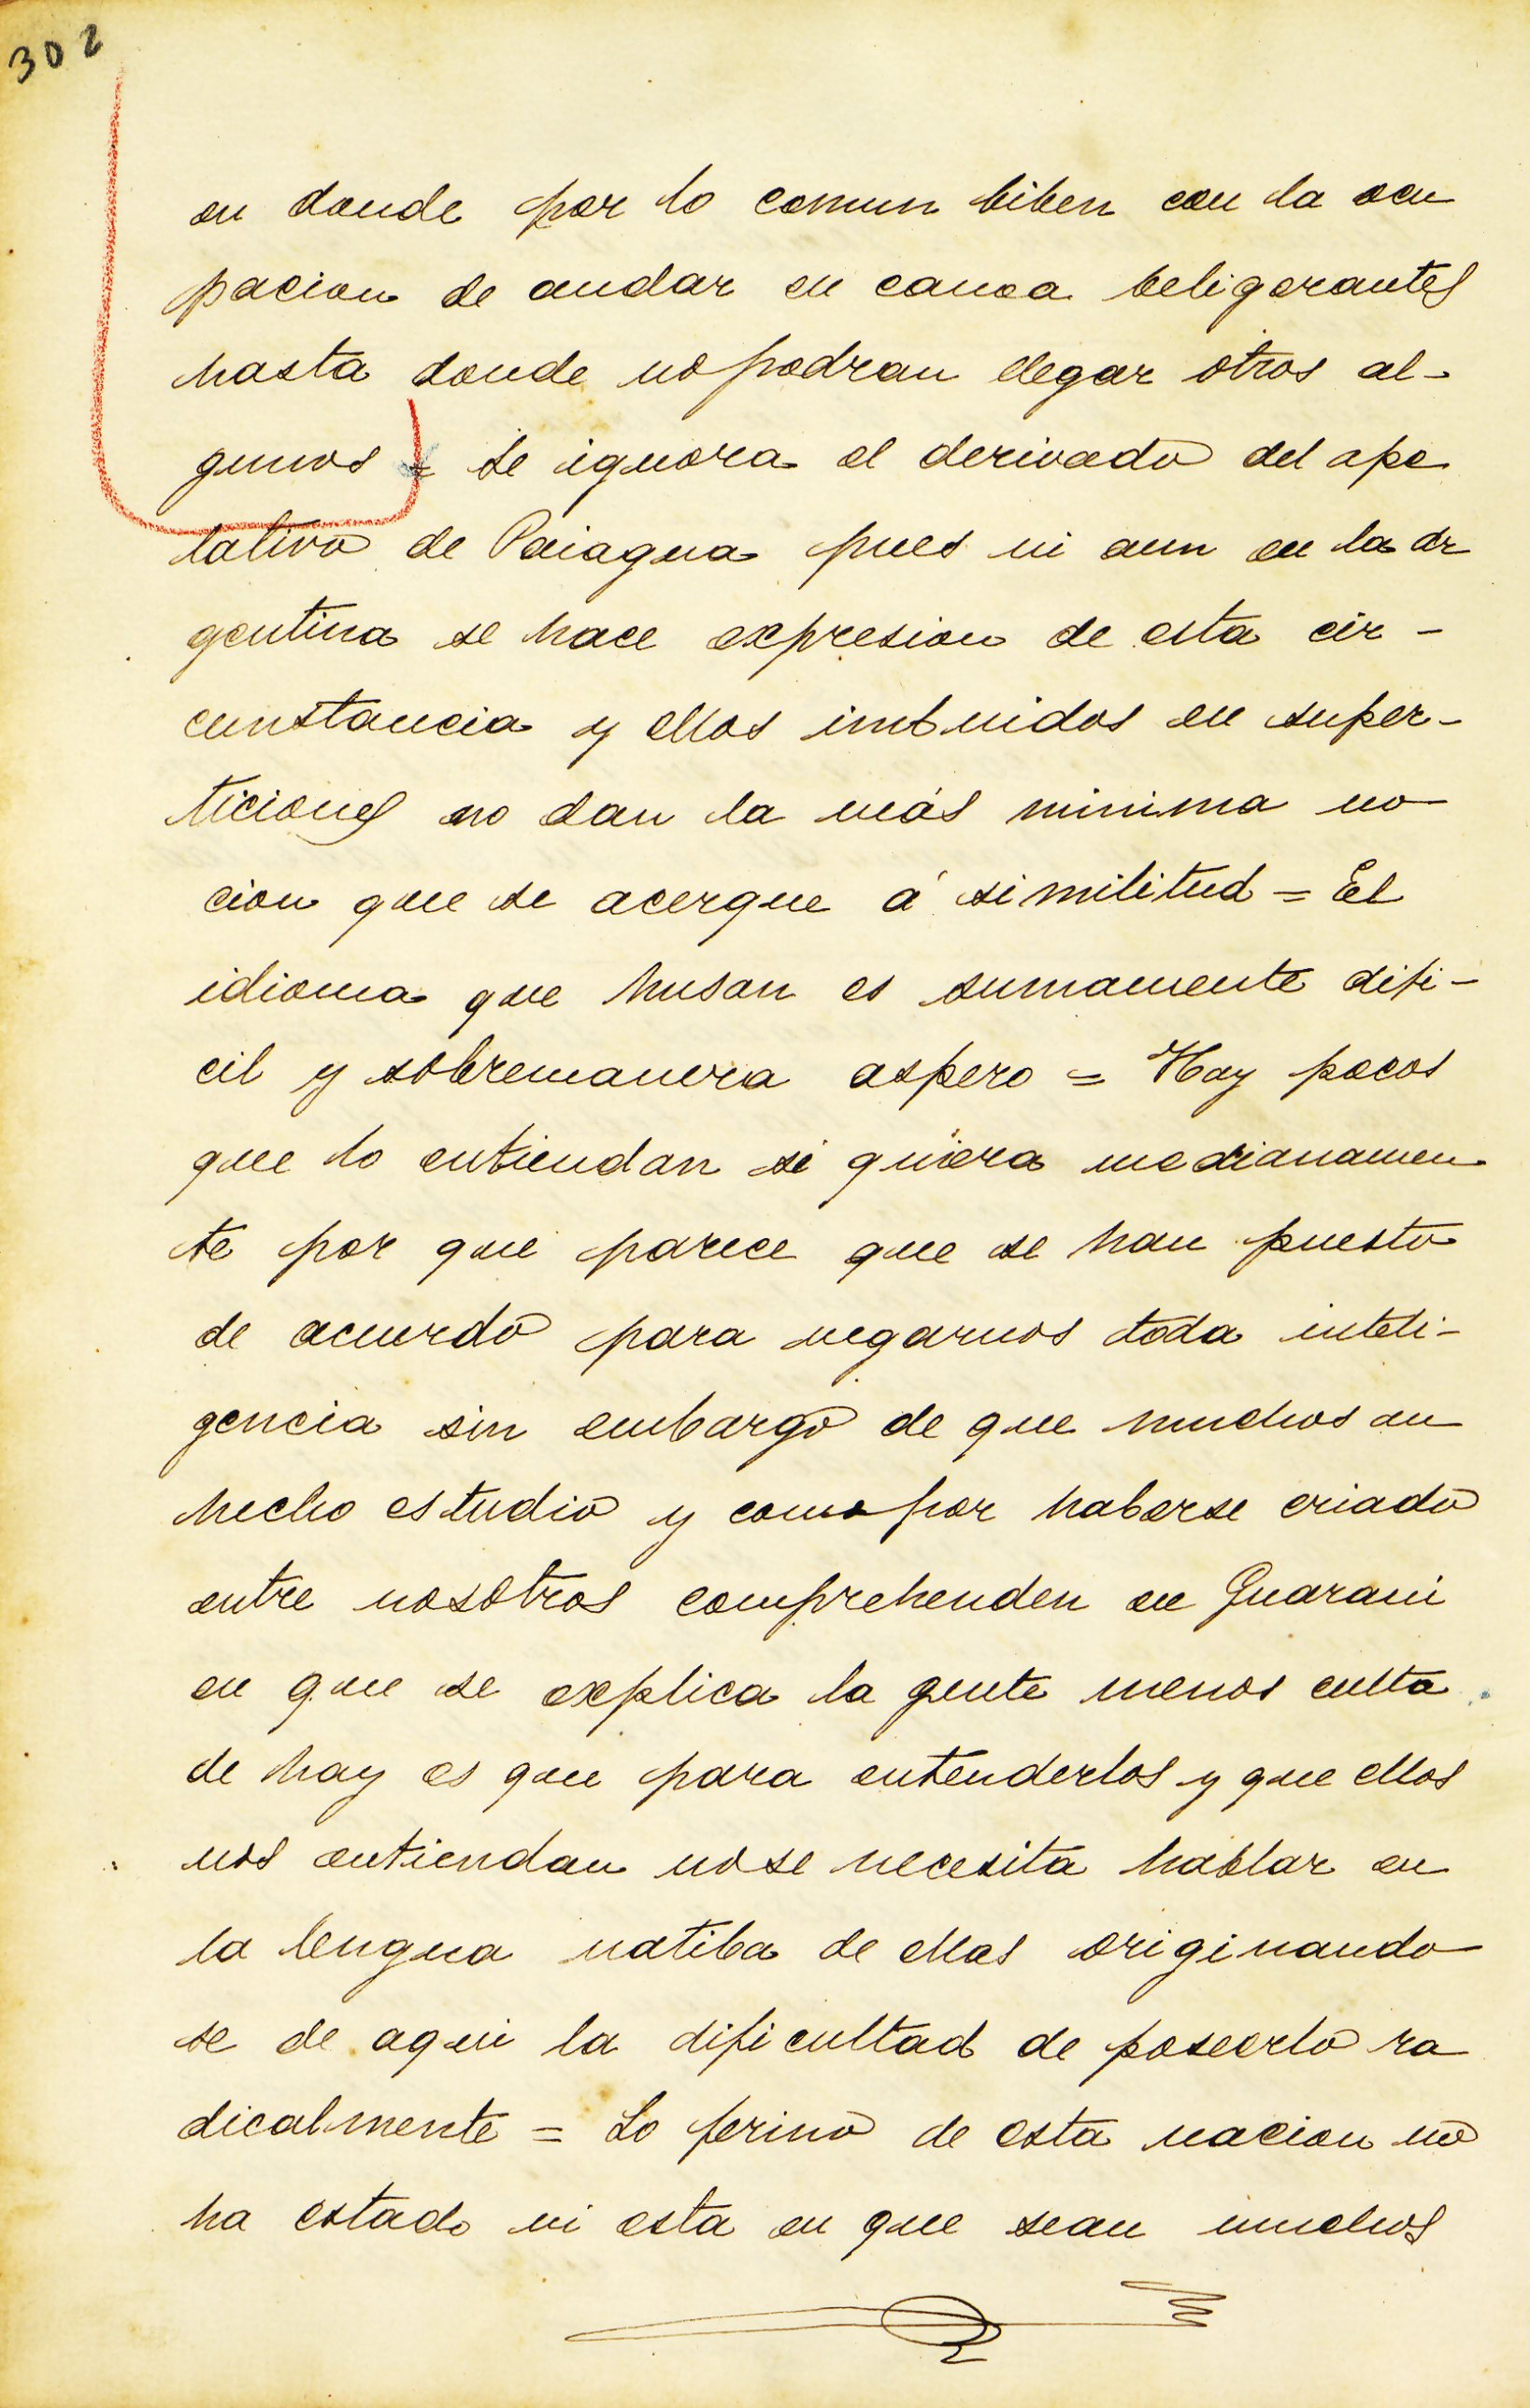 302
en donde por lo comun biben con la ocu
pacion de andar en canoa beligerantes
hasta donde no podran llegar otros al-
gunos = Se ignora el derivado del ape
lativo de Paiagua pues ni aun en la Ar
gentina se hace expresion de esta cir-
cunstancia y ellos imbuidos en super-
ticiones no dan la más minima no
cion que se acerque á similitud = El
idioma que husan es sumamente difi-
cil y sobremanera aspero = Hay pocos
que lo entiendan si quiera medianamen
te por que parece que se han puesto
de acuerdo para negarnos toda inteli-
gencia sin embargo de que muchos an
hecho estudio y como por haberse criado
entre nosotros comprehenden en Guarani
en que se explica la gente menos culta
de hay es que para entenderlos y que ellos
nos entiendan no se necesita hablar en
la lengua natiba de ellos originando
se de aqui la dificultad de poseerlo ra
dicalmente = Lo ferino de esta nacion no
ha estado ni esta en que sean muchos